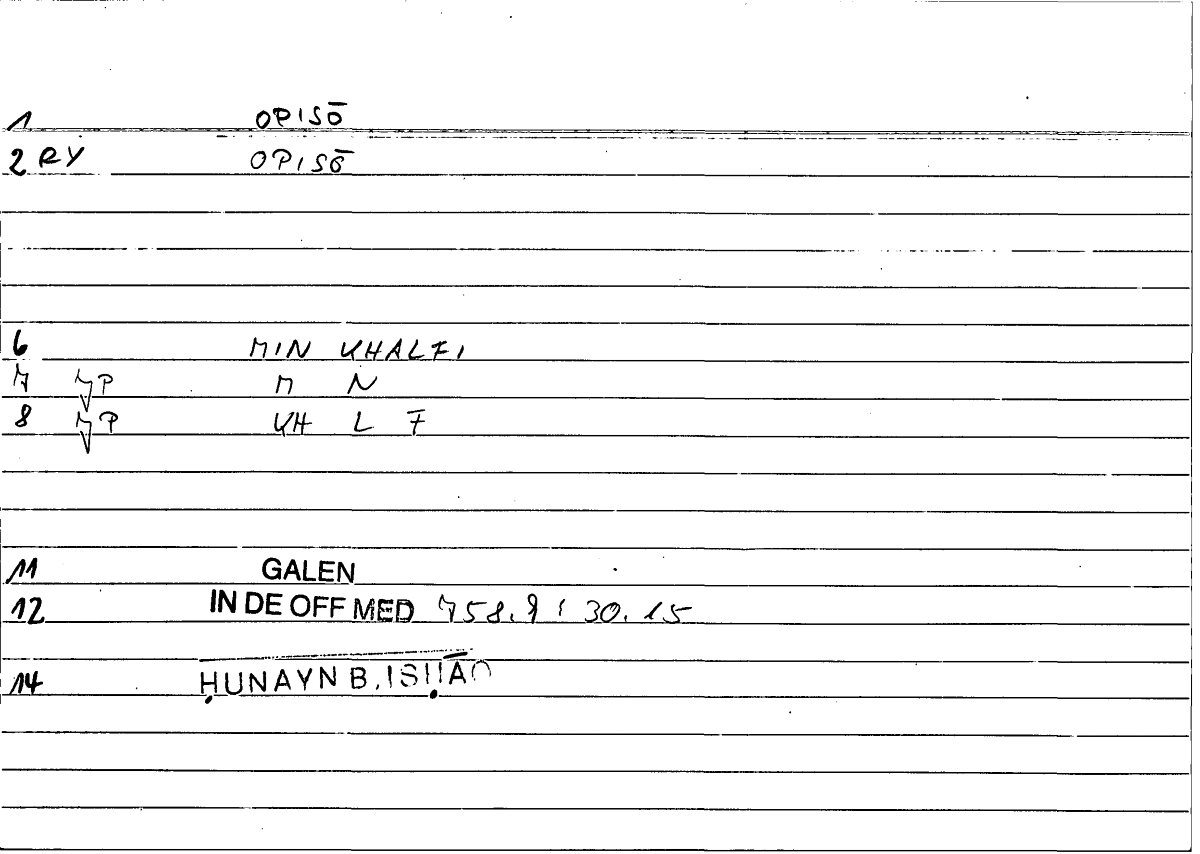 1 OPISŌ
2 RY OPISŌ
6 MIN KHALFI
7 JP M N
8 JP KH L F
11 GALEN
12 IN DE OFF MED 758.9 : 30.15
14 ḤUNAYN B. ISḤĀQ